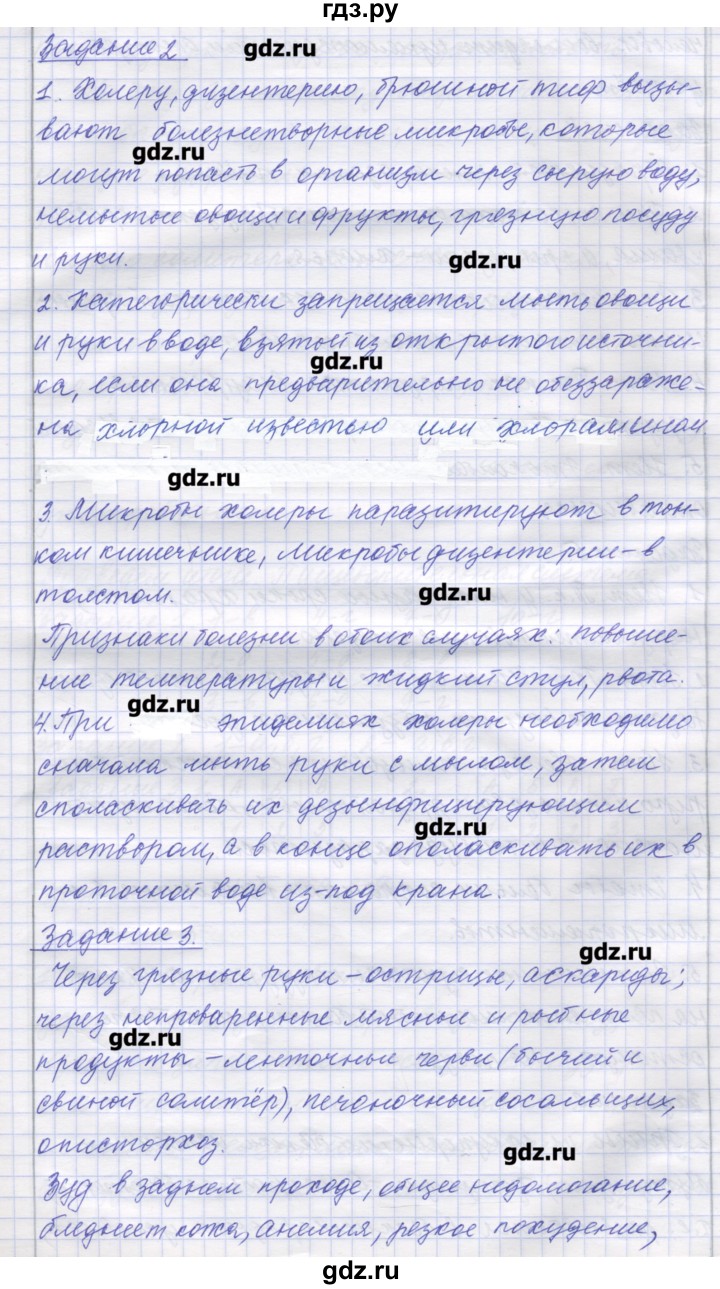 гдз.ру
Задание 2
gdz.ru
1. Холеру, дизентерию, брюшной тиф вызы-
вают болезнетворные микробы, которые
gdz.ru
могут попасть в организм через сырую воду,
немытые овощи и фрукты, грязную посуду
и руки.
gdz.ru
2. Категорически запрещается мыть овощи
и руки в воде, взятой из открытого источни-
gdz.ru
ка, если она предварительно не обеззараже-
на хлорной известью или хлорамином
gdz.ru
3. Микробы холеры паразитируют в тон-
ком кишечнике, микробы дизентерии - в
толстом.
gdz.ru
Признаки болезни в обоих случаях: повыше-
ние температуры и жидкий стул, рвота.
gdz.ru
4. При эпидемиях холеры необходимо
сначала мыть руки с мылом, затем
споласкивать их дезынфицирующим
gdz.ru
раствором, а в конце ополаскивать их в
проточной воде из-под крана.
Задание 3.
gdz.ru
Через грязные руки - острицы, аскариды;
через непроваренные мясные и рыбные
gdz.ru
продукты - ленточные черви (бычий и
свиной солитёр), печёночный сосальщик,
описторхоз.
gdz.ru
Зуд в заднем проходе, общее недомогание,
бледнеет кожа, анемия, резкое похудение,
gdz.ru